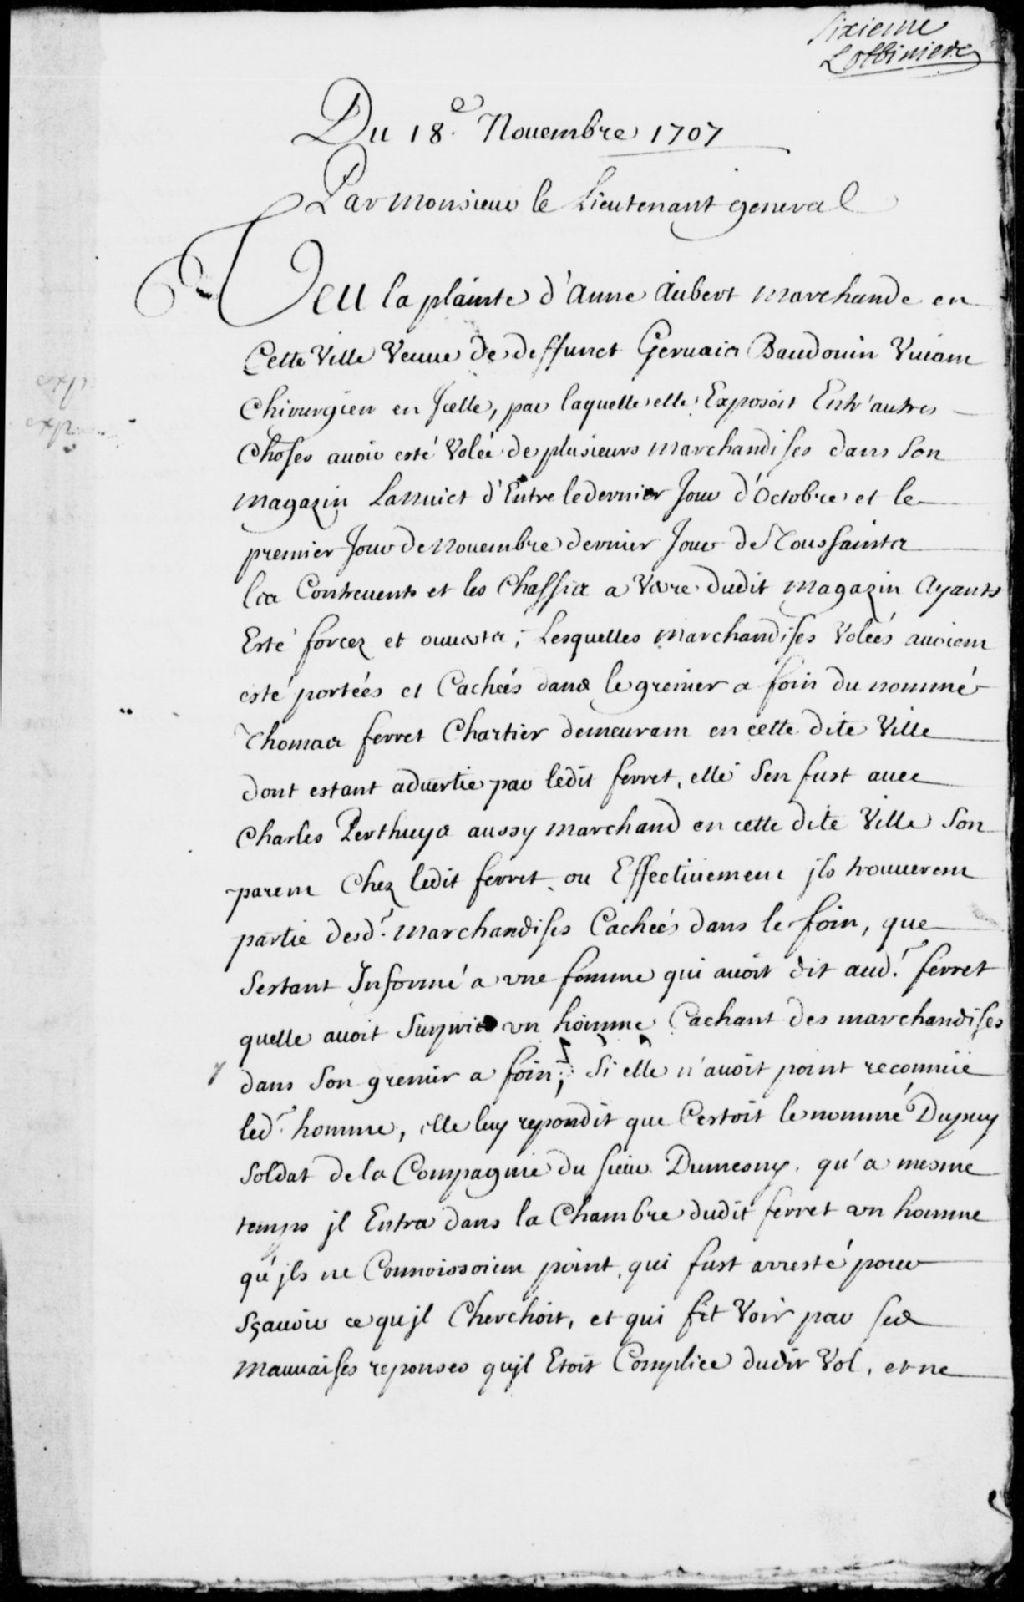 Sixieme
Lotbiniere
Du 18.e Nouembre 1707
Par Monsieur le Lieutenant general
Veu la plainte d'Anne Aubert Marchande en
Cette Ville Veuue de deffunct Geruais Baudouin Viuant
Chirurgien en Jcelle, par laquelle elle Exposoit Entr'autres
Choses auoir esté Volée de plusieurs Marchandises dans Son
Magazin La Nuict d'Entre le dernier Jour d'Octobre et le
premier Jour de Nouembre dernier Jour de Toussaints
les Contreuents et les Chassis a Vitre dudit Magazin Ayants
Esté forcez et ouuerts; Lesquelles Marchandises Volées auoient
esté portées et Cachées dans le grenier a foin du nommé
Thomas ferret Chartier demeurant en cette dite Ville
dont estant aduertie par ledit ferret, elle S'en fust auec
Charles Perthuys aussy Marchand en cette dite Ville Son
parent Chez ledit ferret, ou Effectiuement jls trouuerent
partie desd. Marchandises Cachées dans le foin, que
Sestant Informé a vne femme qui auoit dit aud. ferret
quelle auoit Surpris vn homme Cachant des marchandises
dans Son grenier a foin; Si elle n'auoit point reconnüe
led. homme, elle luy repondit que C'estoit le nommé Dupuy
Soldat de la Compagnie du Sieur Dumesny, qu'a mesme
temps jl Entra dans la Chambre dudit ferret vn homme
qu'jls ne Connoissoient point, qui fust arresté pour
Sçauoir ce qujl Cherchoit, et qui fit Voir par Ses
Mauuaises reponses qujl Etoit Complice dudit Vol, et ne